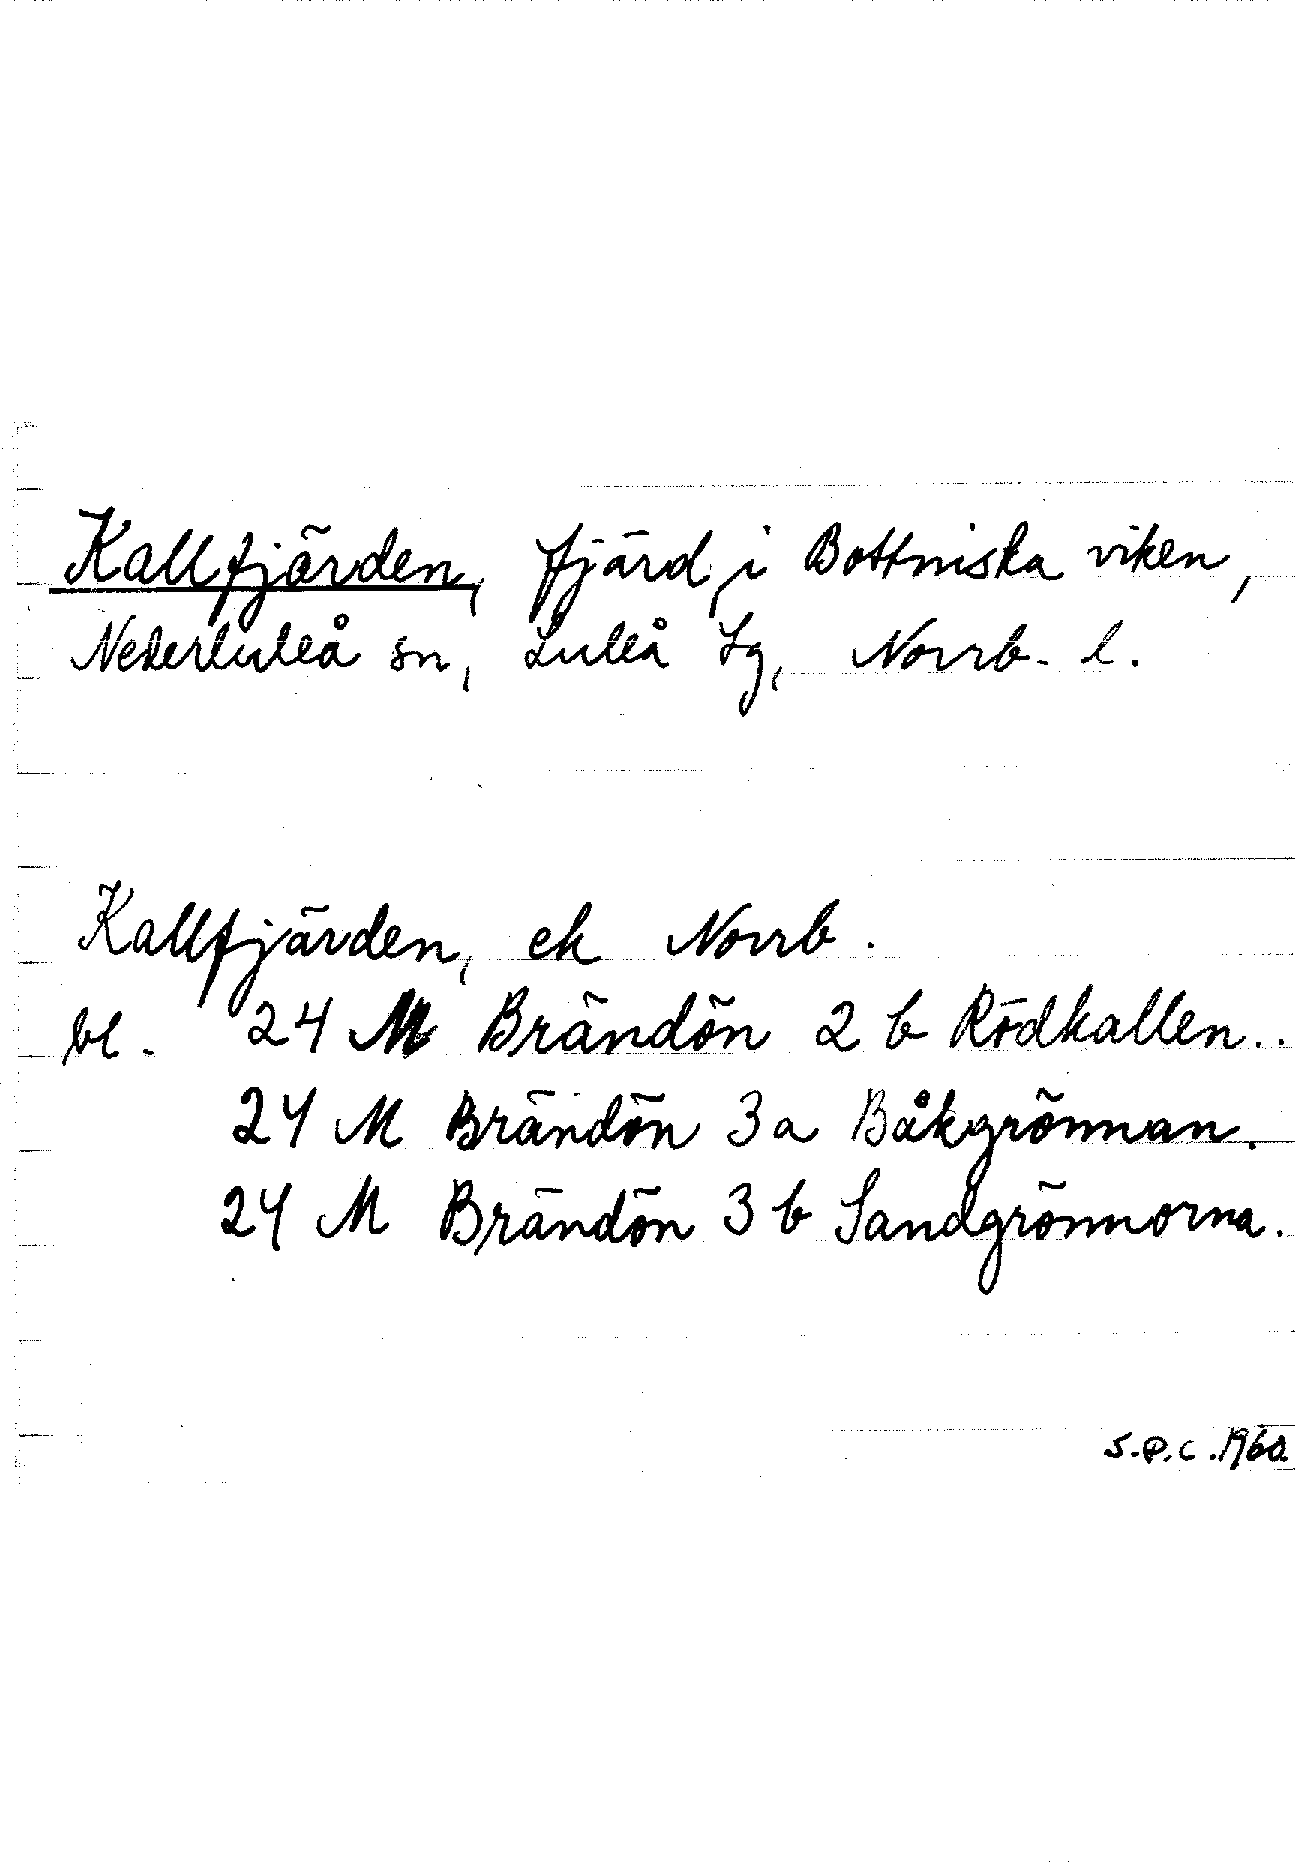 Kallfjärden, fjärd i Bottniska viken,
Nederluleå sn, Luleå tg, Norrb. l.
Kallfjärden, ek Norrb.
bl. 24 M Brändön 2 b Rödkallen..
24 M Brändön 3a Båkgrönnan.
24 M Brändön 3 b Sandgrönnorna.
S.P.C. 1960.